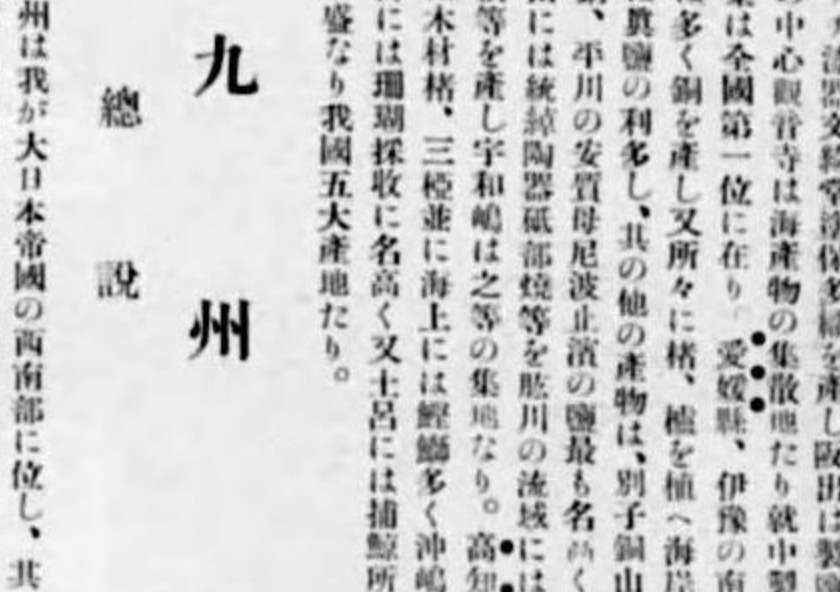 の中心觀音寺は海產物の集散地たり就中製
業は全國第一位に在り。愛媛縣、伊豫の南
は多く銅を產し又所々に楮、樝を植へ海岸
は眞鹽の利多し、其の他の產物は、別子銅山
、平川の安質母尼波止濱の鹽最も名高く
には統綽陶器砥部燒等を產す肱川の流域には
等を產し宇和嶋は之等の集地なり。高知
木材楮、三椏並に海上には鰹鰤多く沖嶋
には珊瑚採收に名高く又土呂には捕鯨所
盛なり我國五大產地たり。
九州
總說
州は我が大日本帝國の西南部に位し、其